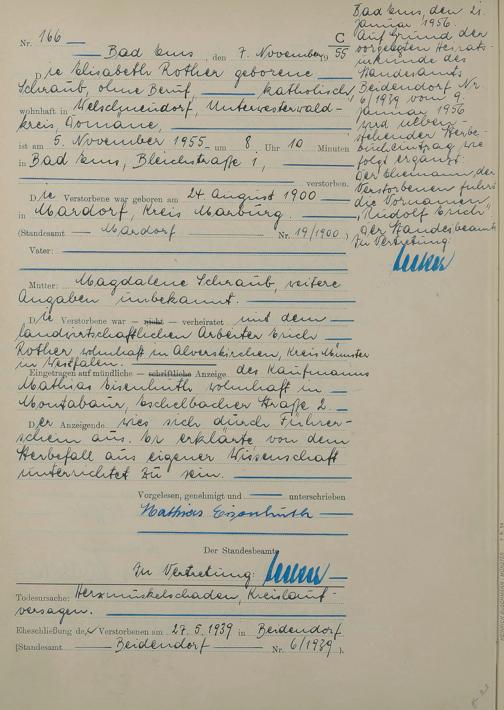 Nr. 166
C
Bad Ems, den 7. November 1955
Die Elisabeth Rother geborene
Schraub, ohne Beruf, katholisch,
wohnhaft in Welschneudorf, Unterwesterwald-
kreis
ist am 5. November 1955 um 8 Uhr 10 Minuten
in Bad Ems, Bleichstraße 1,
verstorben.
Die Verstorbene war geboren am 24. August 1900
in Mardorf, Kreis Marburg.
(Standesamt Mardorf Nr. 19/1900)
Vater:
Mutter: Magdalene Schraub, weitere
Angaben unbekannt.
Die Verstorbene war — nicht — verheiratet mit dem
landwirtschaftlichen Arbeiter Erich
Rother wohnhaft in Alverskirchen, Kreis Münster
in Westfalen.
Eingetragen auf mündliche — schriftliche Anzeige des Kaufmanns
Mathias Eisenhuth wohnhaft in
Montabaur, Eschelbacher Straße 2.
Der Anzeigende wies sich durch Führer-
schein aus. Er erklärte von dem
Sterbefall aus eigener Wissenschaft
unterrichtet zu sein.
Vorgelesen, genehmigt und unterschrieben
Mathias Eisenhuth
Der Standesbeamte
In Vertretung:
Todesursache: Herzmuskelschaden, Kreislauf-
versagen.
Eheschließung der Verstorbenen am 27.5.1939 in Beidendorf
(Standesamt Beidendorf Nr. 6/1939).
Bad Ems, den 21.
Januar 1956.
Auf Grund der
vorgelegten Heirats-
urkunde des
Standesamts
Beidendorf Nr.
6/1939 vom 9.
Januar 1956
wird neben-
stehender Sterbe-
bucheintrag, wie
folgt ergänzt:
Der Ehemann der
Verstorbenen führt
die Vornamen
"Rudolf Erich"
Der Standesbeamte
In Vertretung: